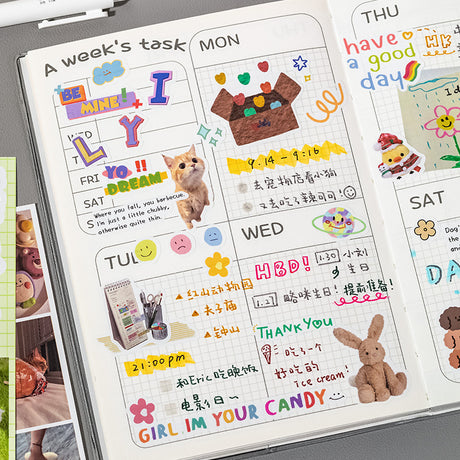 A week's task
BE
MINE!
I
L
Y
WED
T
FRI
SAT
S
YO !!
DREAM
Where you fall, you barbecue.
I'm just a little chubby,
otherwise quite thin.
MON
9:14 - 9:16
去宠物店看小狗
又去吃了辣可可!
TUE
红山动物园
夫子庙
钟山
21:00pm
和Eric吃晚饭
电影日~
GIRL IM YOUR CANDY
WED
HBD!
1.30 小刘
生日
1.27 晗咪生日! 提前准备!
THANK YOU
吃了个
好吃的
ice cream!
THU
have
a good
day
HK
I d
SAT
Dog
the
DA